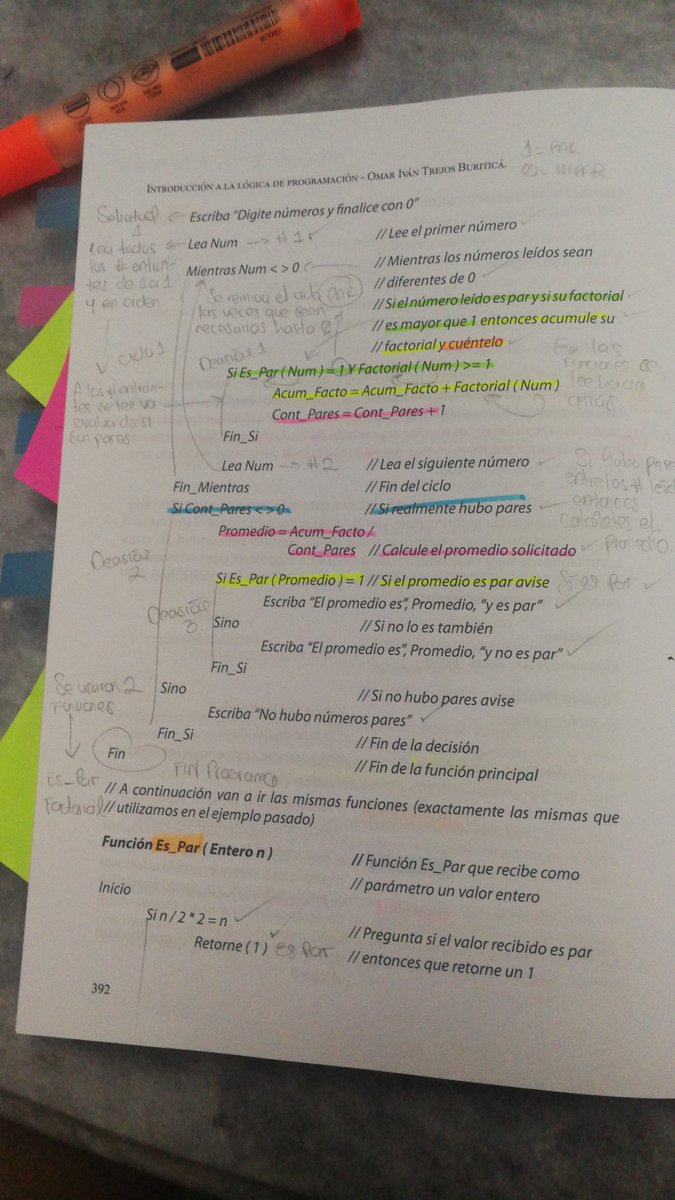 INTRODUCCIÓN A LA LÓGICA DE PROGRAMACIÓN - OMAR IVÁN TREJOS BURITICÁ.
1 = PAR
0 = IMPAR
Solicitud
Escriba "Digite números y finalice con 0"
1
Lea todos
los # entran-
tes de 1 a 1
y en orden
Lea Num → # 1 // Lee el primer número
Mientras Num < > 0 // Mientras los números leídos sean
// diferentes de 0
Se reinicia el ciclo PAR
las veces que sean
necesarios hasta 0
// Si el número leído es par y si su factorial
// es mayor que 1 entonces acumule su
// factorial y cuéntelo
Ciclo 1
Decisión 1
Si Es_Par ( Num ) = 1 Y Factorial ( Num ) >= 1
En las
funciones se
lee hacia
atrás
A los # entran-
tes se les va
evaluando si
son pares
Acum_Facto = Acum_Facto + Factorial ( Num )
Cont_Pares = Cont_Pares + 1
Fin_Si
Lea Num → # 2 // Lea el siguiente número
Fin_Mientras // Fin del ciclo
Si hubo pares
entre los # leíd
entonces
calcúleles el
promedio
Si Cont_Pares < > 0 // Si realmente hubo pares
Promedio = Acum_Facto /
Cont_Pares // Calcule el promedio solicitado
Decisión
2
Si Es_Par ( Promedio ) = 1 // Si el promedio es par avise
Si es Par
Escriba "El promedio es", Promedio, "y es par"
Decisión
3
Sino // Si no lo es también
Escriba "El promedio es", Promedio, "y no es par"
Fin_Si
Sino // Si no hubo pares avise
Se usaron 2
Funciones
Escriba "No hubo números pares"
Fin_Si // Fin de la decisión
Fin // Fin de la función principal
FIN Programa
Es_Par
Factorial
// A continuación van a ir las mismas funciones (exactamente las mismas que
// utilizamos en el ejemplo pasado)
Función Es_Par ( Entero n ) // Función Es_Par que recibe como
Inicio // parámetro un valor entero
Si n / 2 * 2 = n // Pregunta si el valor recibido es par
Retorne ( 1 ) Es Par // entonces que retorne un 1
392